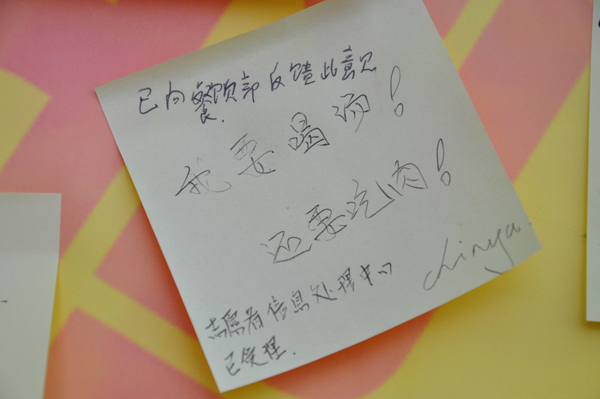 已向餐饮部反馈此意见
我要喝汤!
还要吃肉!
Linya.
志愿者信息处理中心
已受理.